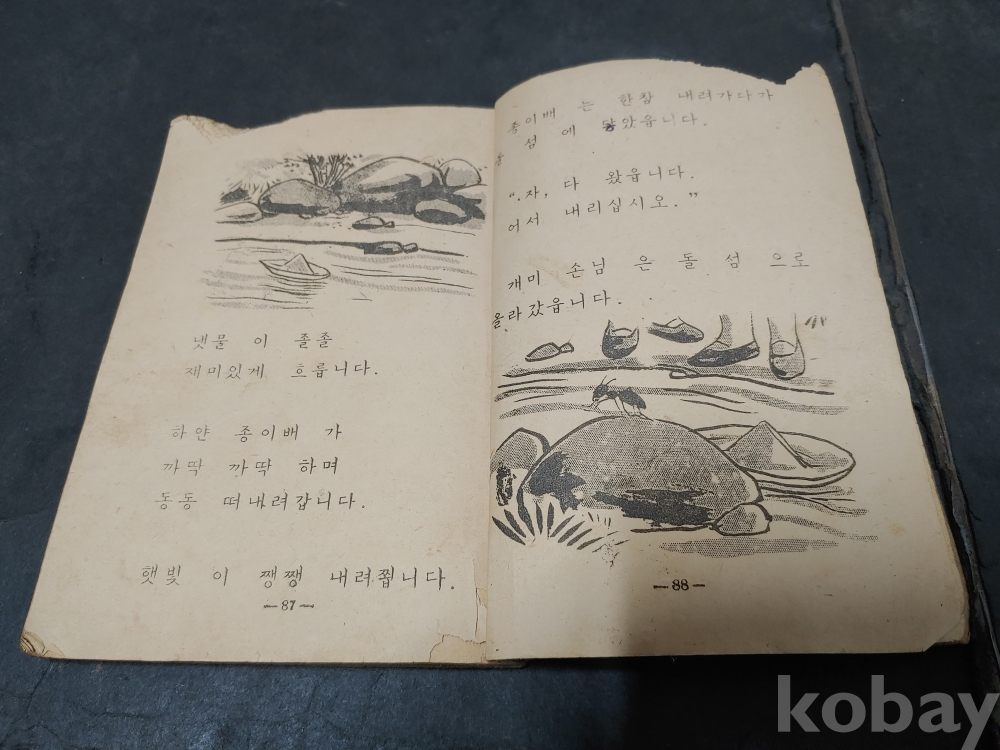 냇물 이 졸졸
재미있게 흐릅니다.
하얀 종이배 가
까딱 까딱 하며
동동 떠내려갑니다.
햇빛 이 쨍쨍 내려쬡니다.
—87—
종이배 는 한참 내려가다가
돌 섬 에 닿았읍니다.
“자, 다 왔읍니다.
어서 내리십시오.”
개미 손님 은 돌 섬 으로
올라갔읍니다.
—88—
kobay